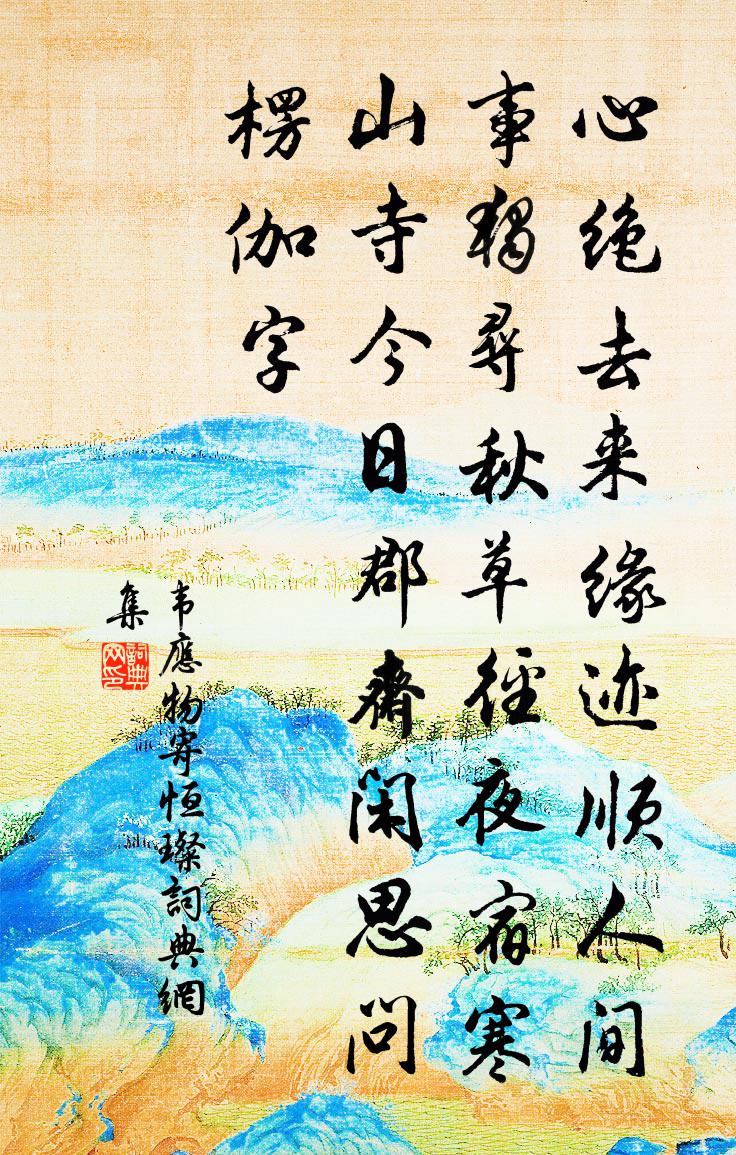 心绝去来缘迹顺人间
事独寻秋草径夜宿寒
山寺今日郡斋闲思问
楞伽字
韦應物寄恒璨詞典網
集
詞典
网印